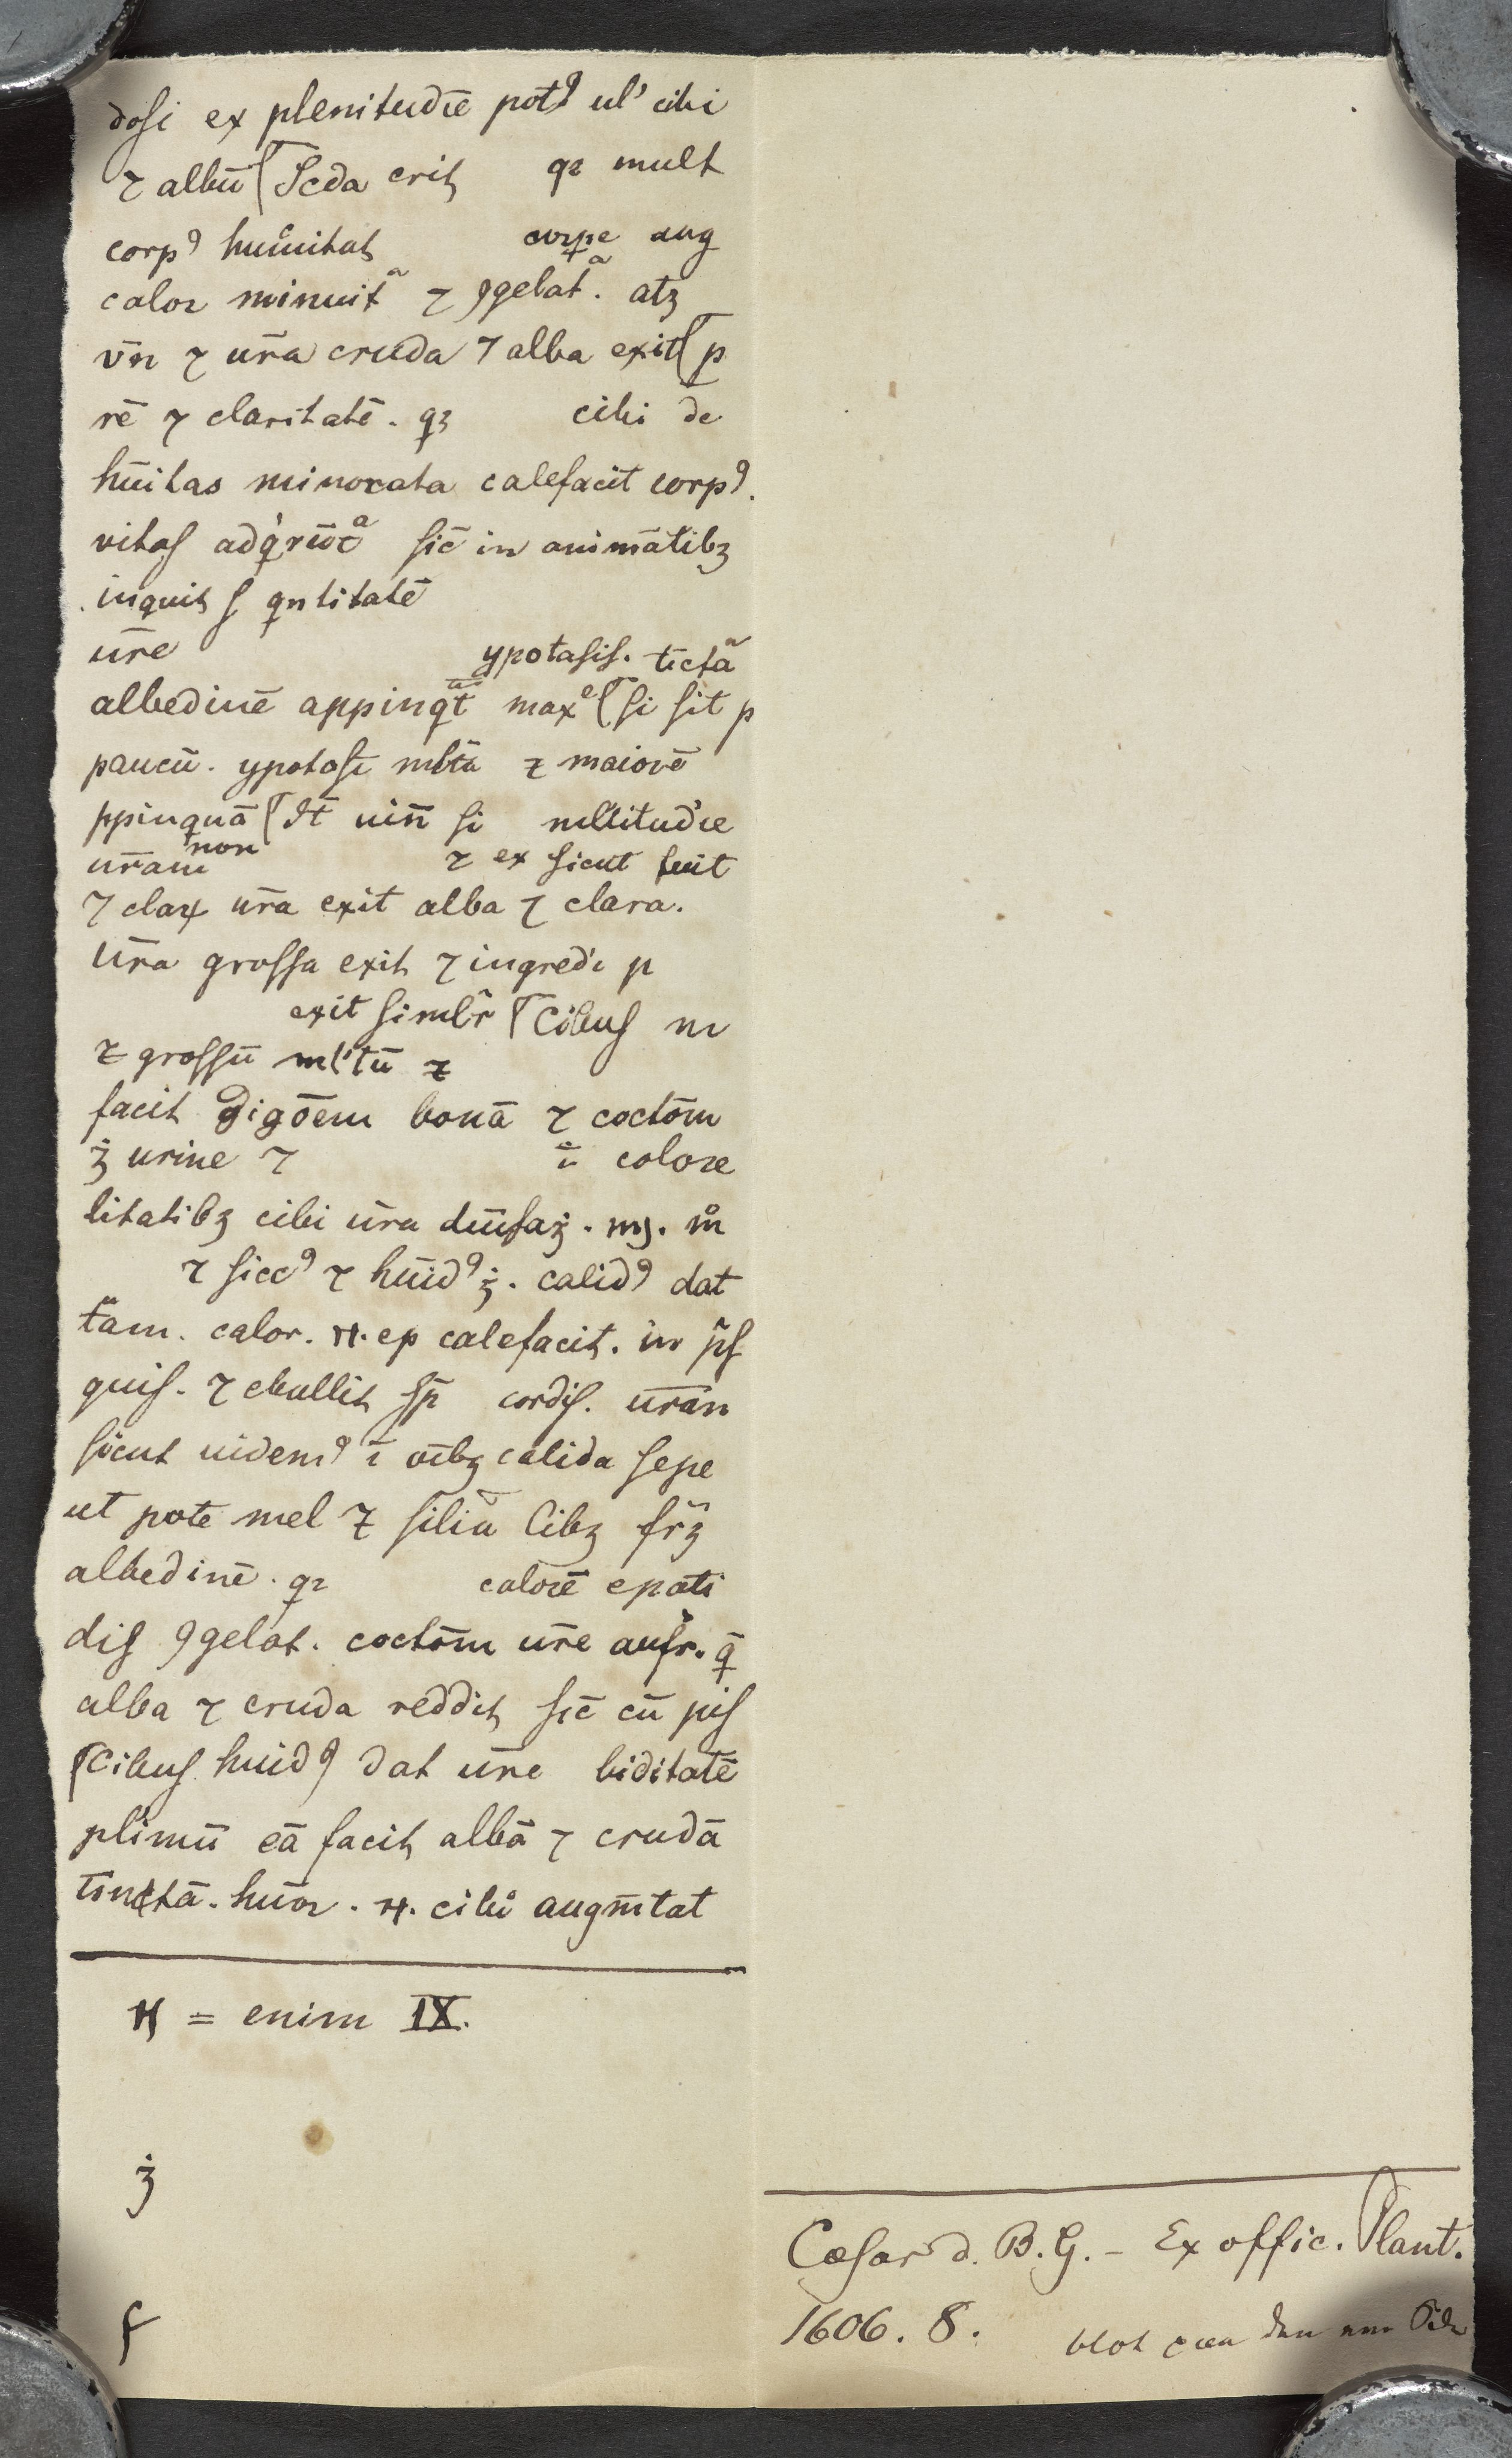 dosi ex plenitudīe potꝰ ul' cibi
⁊ albū Scda erit qꝛ mult
corpꝰ humitat corpe aug
calor minuit ⁊ ꝯgelat. atꝫ
vn̄ ⁊ ur̄a cruda ⁊ alba exit p
rē ⁊ claritatē. qꝫ cibi de
hūitas minorata calefacit corpꝰ.
vitas sic̄ in animātibꝫ
inquit s qntitatē
ur̄e ypotasis. tīcta
albedinē appinqt maxͤ si sit p
paucū. ypotasī mltā ⁊ maiorē
ppinquā It uin̄ si mltitudīe
ur̄am non ⁊ ex sicut fuit
⁊ claꝝ ur̄a exit alba ⁊ clara.
Ur̄a grossa exit ⁊ ingredi p
exit similr̄ Cibus m
⁊ grossū ml'tū ⁊
facit digōem bonā ⁊ coctōm
ꝫ urine ⁊ ī colore
litatibꝫ cibi ur̄a
⁊ siccꝰ ⁊ hūidꝰ ꝫ. calidꝰ dat
tam. calor. H. ep calefacit. in
quis. ⁊ ebullit sp̄ cordis. ur̄an
sicut uidemꝰ ī oībꝫ calida sepe
ut pote mel ⁊ silia cibꝫ fr̄ꝫ
albedinē. qꝛ calorē epati
dis ꝯgelat. coctōm ur̄e aufr. q̄
alba ⁊ cruda reddit sic̄ cū pis
Cibus huidꝰ dat ur̄e biditatē
plimū eā facit albā ⁊ crudā
tinctā. hūor. H. cibi augm̄tat
H = enim IX.
ꝫ
Cæsar d. B. G. - Ex offic. Plant.
1606. 8.